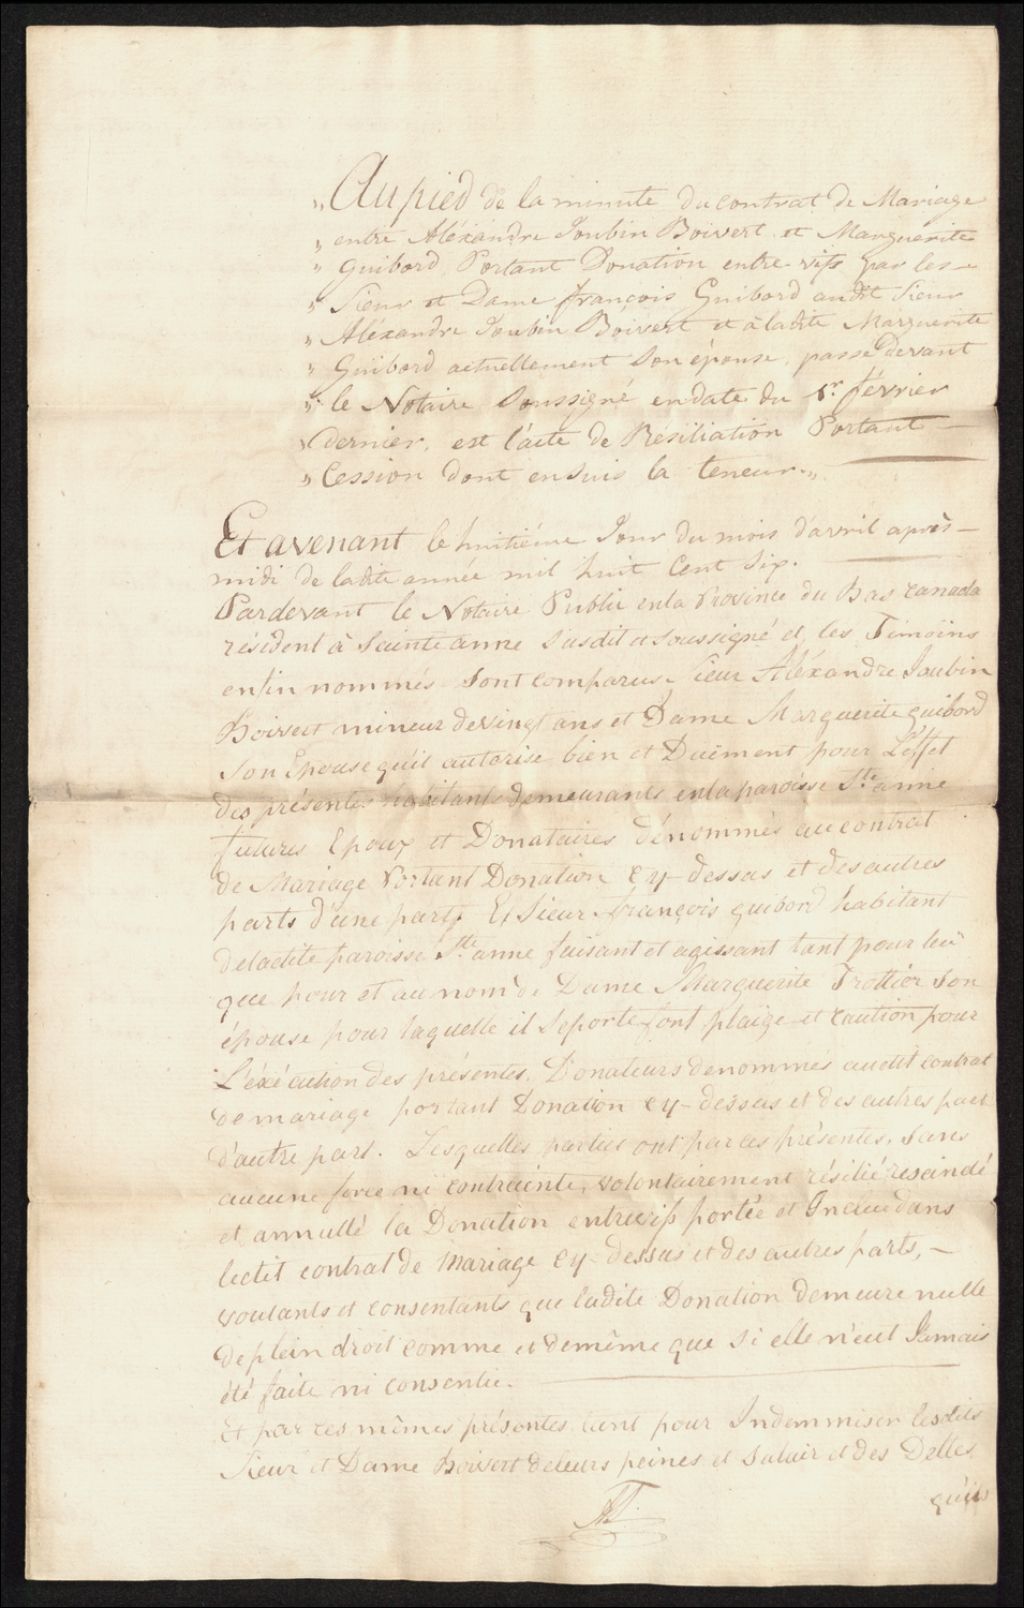 " Au pied de la minute du contrat de Mariage
" entre Aléxandre Joubin Boivert et Marguerite
" Guibord Portant Donation entre vifs par les —
" Sieur et Dame françois Guibord audit Sieur
" Aléxandre Joubin Boivert et à ladite Marguerite
" Guibord actuellement Son épouse, passé Devant
" le Notaire Soussigné en date du 1r. février
" dernier, est l'acte de Résiliation Portant —
" Cession dont ensuis la teneur. "
Et avenant le huitiéme Jour du mois d'avril après —
midi de ladite année mil huit Cent Six.
Pardevant le Notaire Public en la Province du Bas Canada
résident à Sainte anne Susdit et Soussigné et les Témoins
enfin nommés Sont comparus Sieur Aléxandre Joubin
Boivert mineur de vingt ans et Dame Marguerite guibord
Son Epouse qu'il autorise bien et Duëment pour L'effet
des présentes habitants demeurants en la paroisse Ste anne
futures Epoux et Donataires dénommés au contrat
de Mariage Portant Donation Cy-dessus et des autres
parts d'une part, Et Sieur françois guibord habitant
de ladite paroisse Ste anne faisant et agissant tant pour lui
que pour et au nom de Dame Marguerite Trottier Son
épouse pour laquelle il Se porte font plaige et caution pour
L'éxécution des présentes, Donateurs denommés audit contrat
de mariage portant Donation Cy-dessus et des autres part
d'autre part. Lesquelles parties ont par ces présentes, Sans
aucune force ni contrainte, volontairement résilié rescindé
et annullé la Donation entrevifs portée et Inclue dans
ledit contrat de Mariage Cy-dessus et des autres parts, —
voulants et consentants que ladite Donation demeure nulle
de plein droit comme et demême que Si elle n'eut Jamais
été faite ni consentie.
Et par ces mêmes présentes tant pour Indemniser lesdits
Sieur et Dame Boivert de leurs peines et Salair et des Dettes
qu'ils